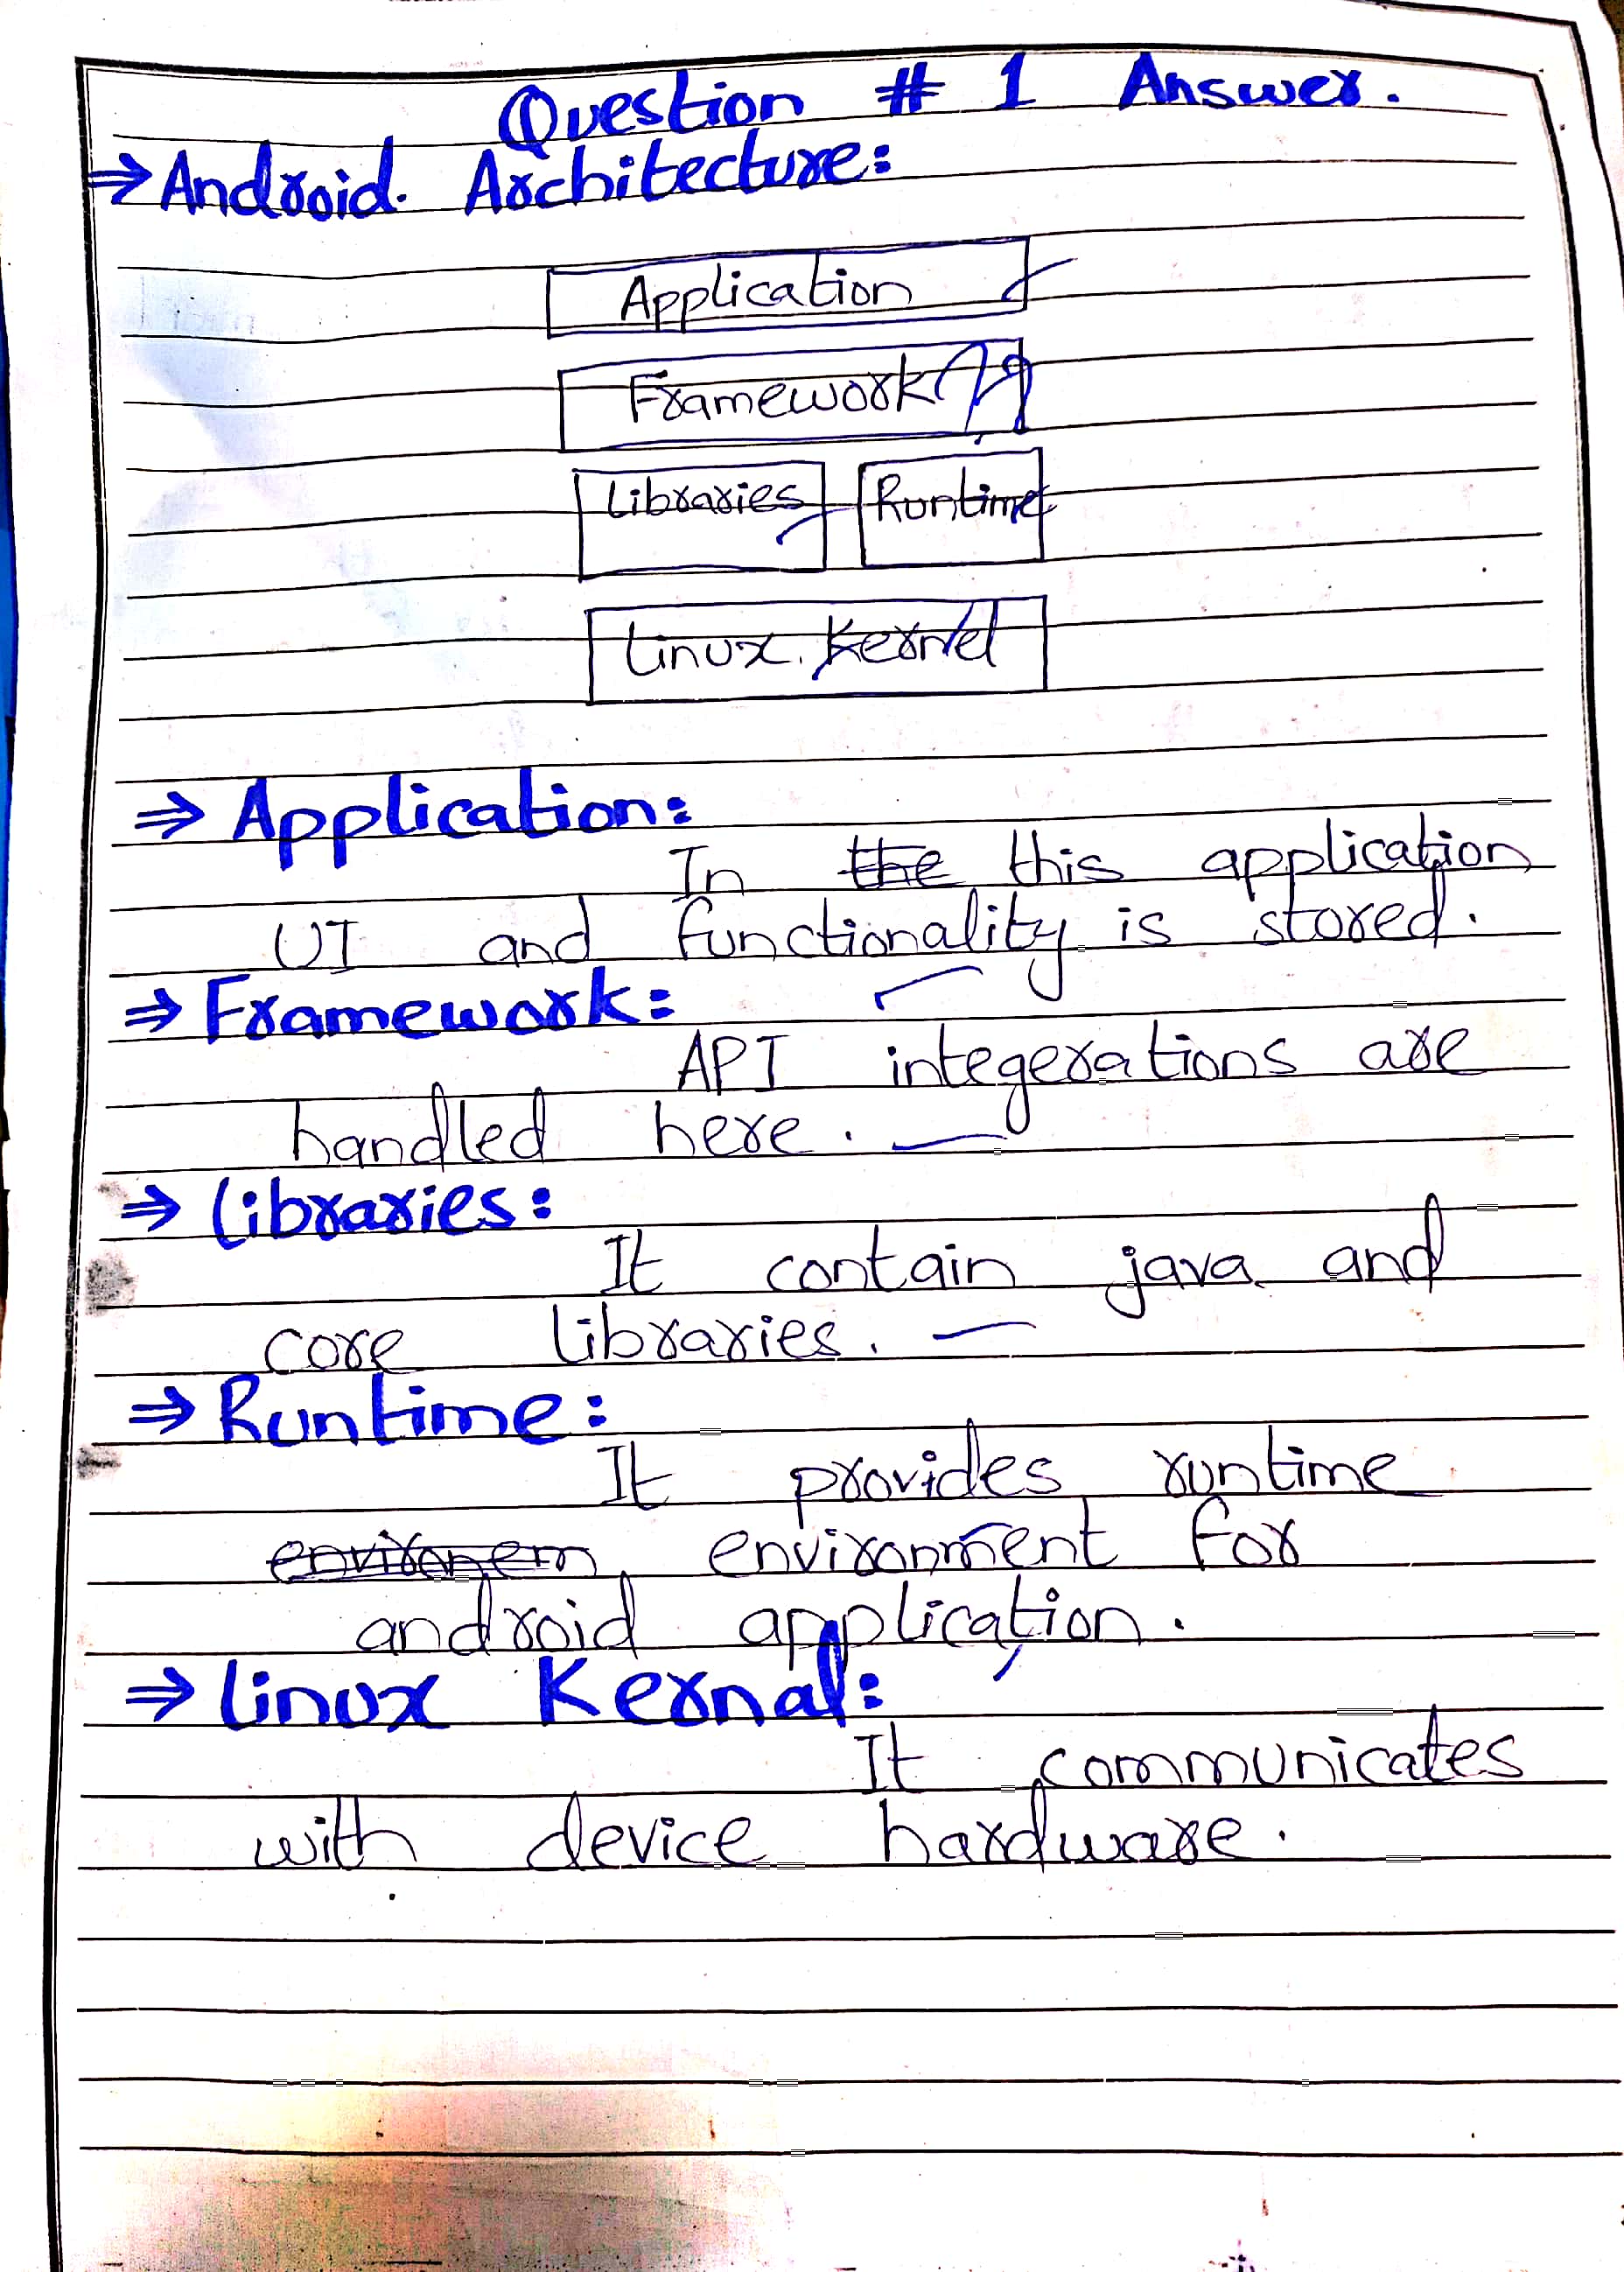 Question # 1 Answer.
⇒ Android. Architecture:
Application
Framework
Libraries Runtime
Linux. Kernel
⇒ Application:
In the this application
UI and functionality is stored.
⇒ Framework:
API integerations are
handled here.
⇒ Libraries:
It contain java and
core libraries.
⇒ Runtime:
It provides runtime
environem environment for
android application.
⇒ Linux Kernal:
It communicates
with device hardware.